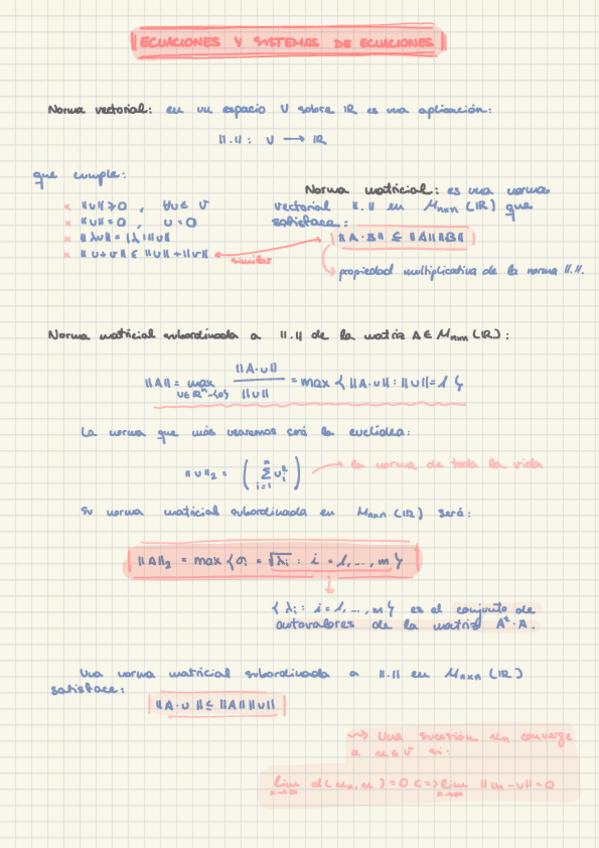 ECUACIONES Y SISTEMAS DE ECUACIONES
Norma vectorial: en un espacio V sobre IR es una aplicación:
||.|| : V → IR
que cumple:
× ||v|| ≥ 0 , ∀v ∈ V
× ||v|| = 0 , v = 0
× ||λv|| = |λ| ||v||
× ||u+v|| ≤ ||u|| + ||v||
similar
Norma matricial: es una norma
vectorial ||.|| en Mnxn (IR) que
satisface:
||A·B|| ≤ ||A|| ||B||
propiedad multiplicativa de la norma ||.||.
Norma matricial subordinada a ||.|| de la matriz A ∈ Mnxm (IR):
||A|| = max v∈IRⁿ-{0} ||A·v|| / ||v|| = max { ||A·v|| : ||v|| = 1 }
La norma que más usaremos será la euclídea:
||v||₂ = ( Σ i=1 n vᵢ² ) → la norma de toda la vida
Su norma matricial subordinada en Mnxn (IR) será:
||A||₂ = max { σᵢ = √λᵢ : i = 1, ..., m }
{ λᵢ : i = 1, ..., m } es el conjunto de
autovalores de la matriz Aᵗ · A.
Una norma matricial subordinada a ||.|| en Mnxn (IR)
satisface:
||A·v|| ≤ ||A|| ||v||
⇝ Una sucesión un converge
a u ∈ V si:
lim n→∞ d(un, u) = 0 <=> lim n→∞ ||un - u|| = 0